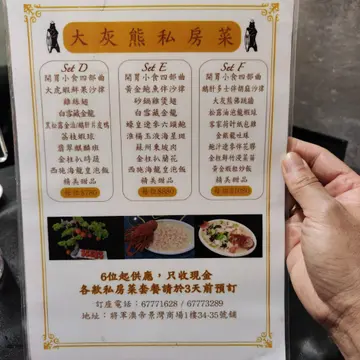 大灰熊私房菜
Set D
開胃小食四部曲
大虎蝦鮮果沙律
雞絲翅
白雪藏金龍
荔枝蝦球
翡翠麒麟班
金柱扒時蔬
西施海龍皇泡飯
精美甜品
每位$780
Set E
開胃小食四部曲
黃金鮑魚伴沙律
砂鍋雞煲翅
白雪藏金龍
蠔皇遼參六頭鮑
淮楊玉液海星斑
蘇州東坡肉
金柱扒蘭花
西施海龍皇泡飯
精美甜品
每位$880
Set F
開胃小食四部曲
鵝肝多士伴胡麻沙律
大灰熊佛跳牆
松露油泡龍蝦球
客家荷針班包雞
金銀龍吐珠
鮑汁遼參伴花膠
金柱鮮竹浸菜苗
黃金蝦粒炒飯
精美甜品
6位起供應，只收現金
各款私房菜套餐請於3天前預訂
訂座電話：67771628 / 67773289
地址：將軍澳帝景灣商場1樓34-35號舖